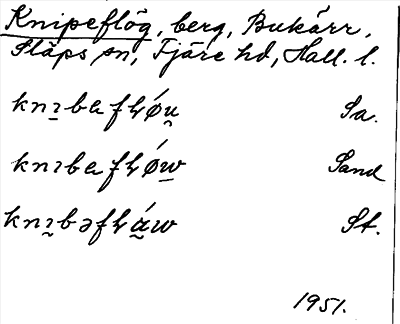 Knipeflög, berg, Bukärr,
Släps sn, Fjäre hd, Hall. l.
knɪ̠bɐfɫǿu̯ Sa.
knɪbɐfɫǿw̠ Sand
knɪ̰bəfɫá̰w St.
1951.